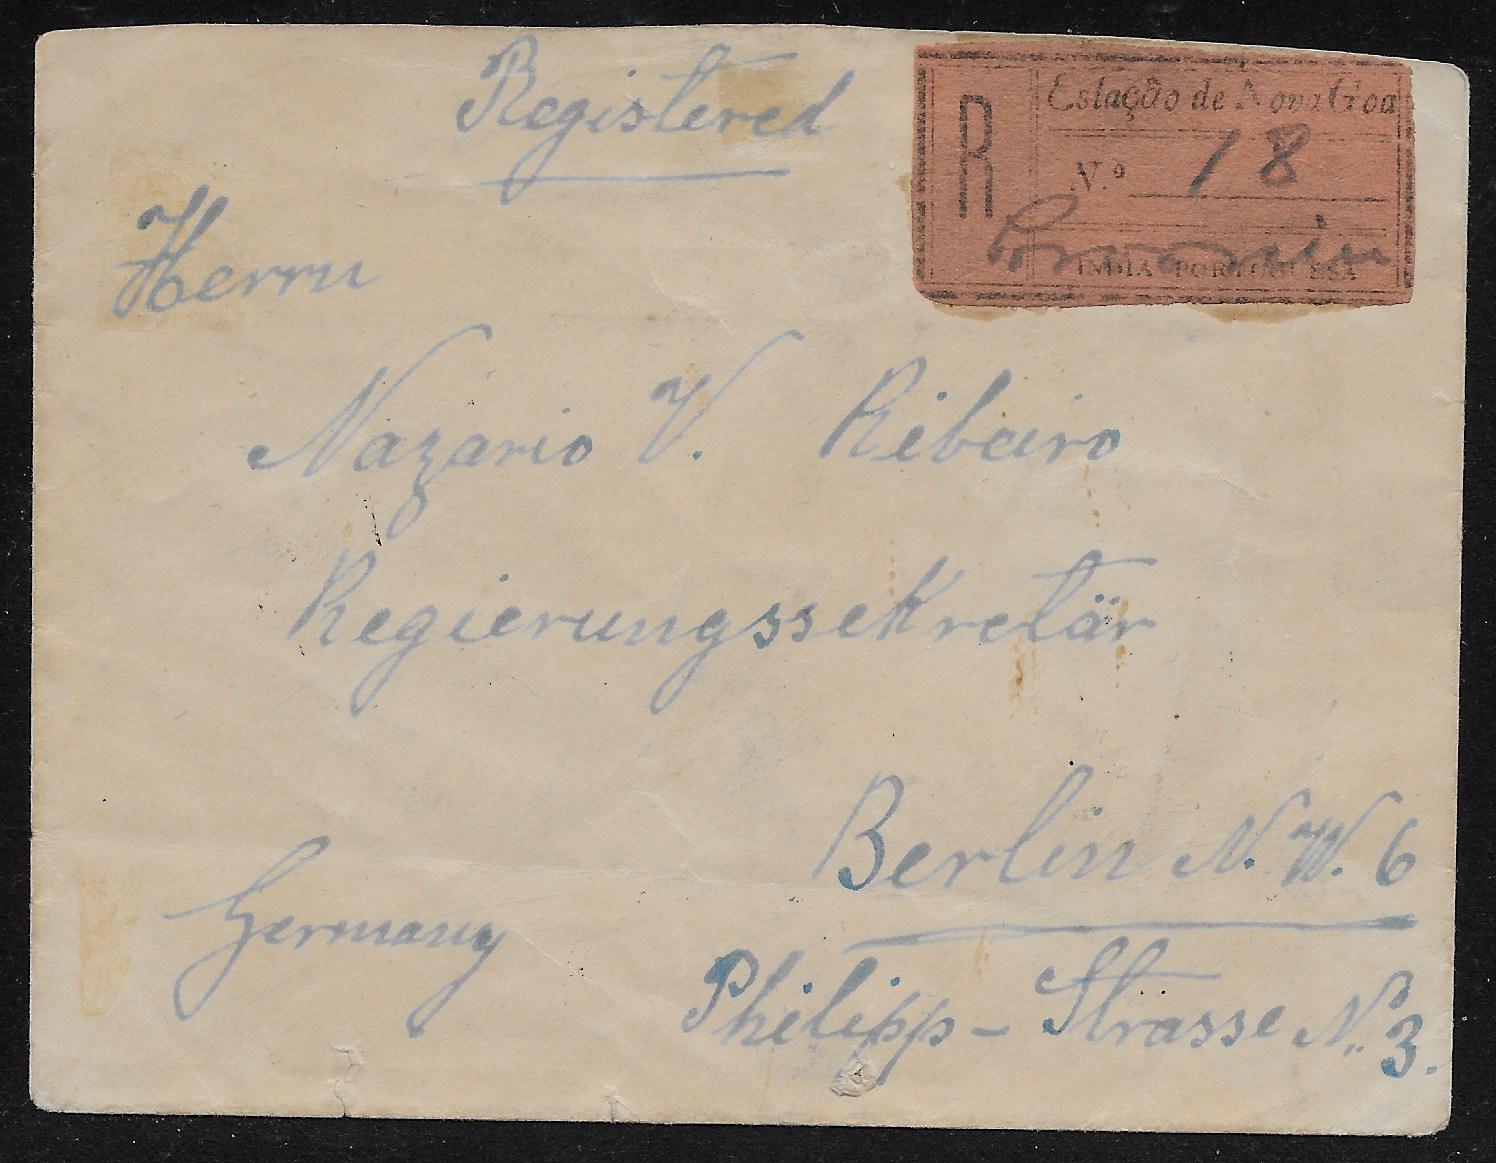 Registered
R
Estação de Nova Goa
N.º 18
INDIA PORTUGUESA
Herrn
Nazario V. Ribeiro
Regierungssekretär
Berlin N.W. 6
Germany
Philipp-Strasse N. 3.